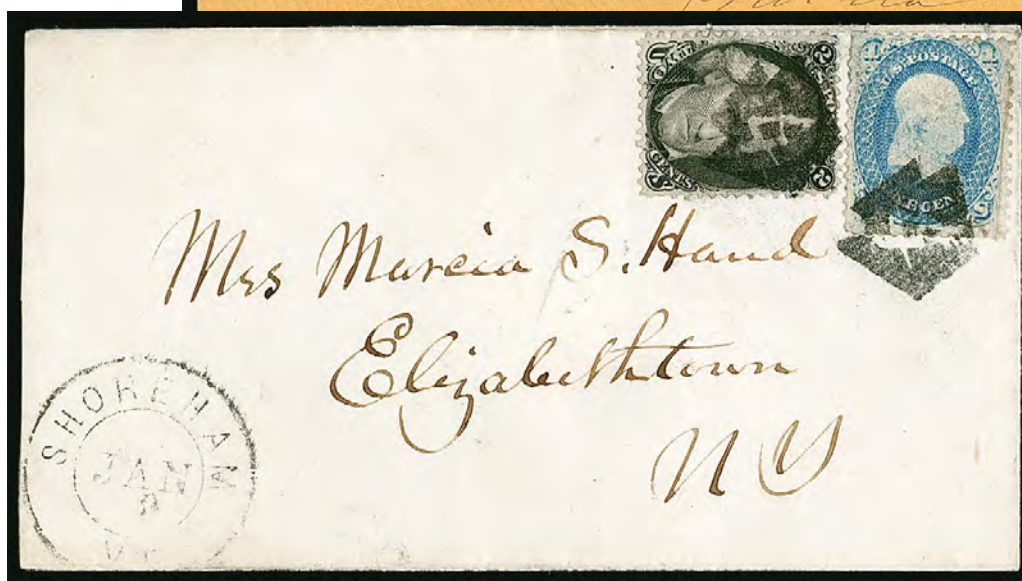 U.S. POSTAGE
Mrs Marcia S. Hand
Elizabethtown
N Y
SHOREHAM
JAN
VT